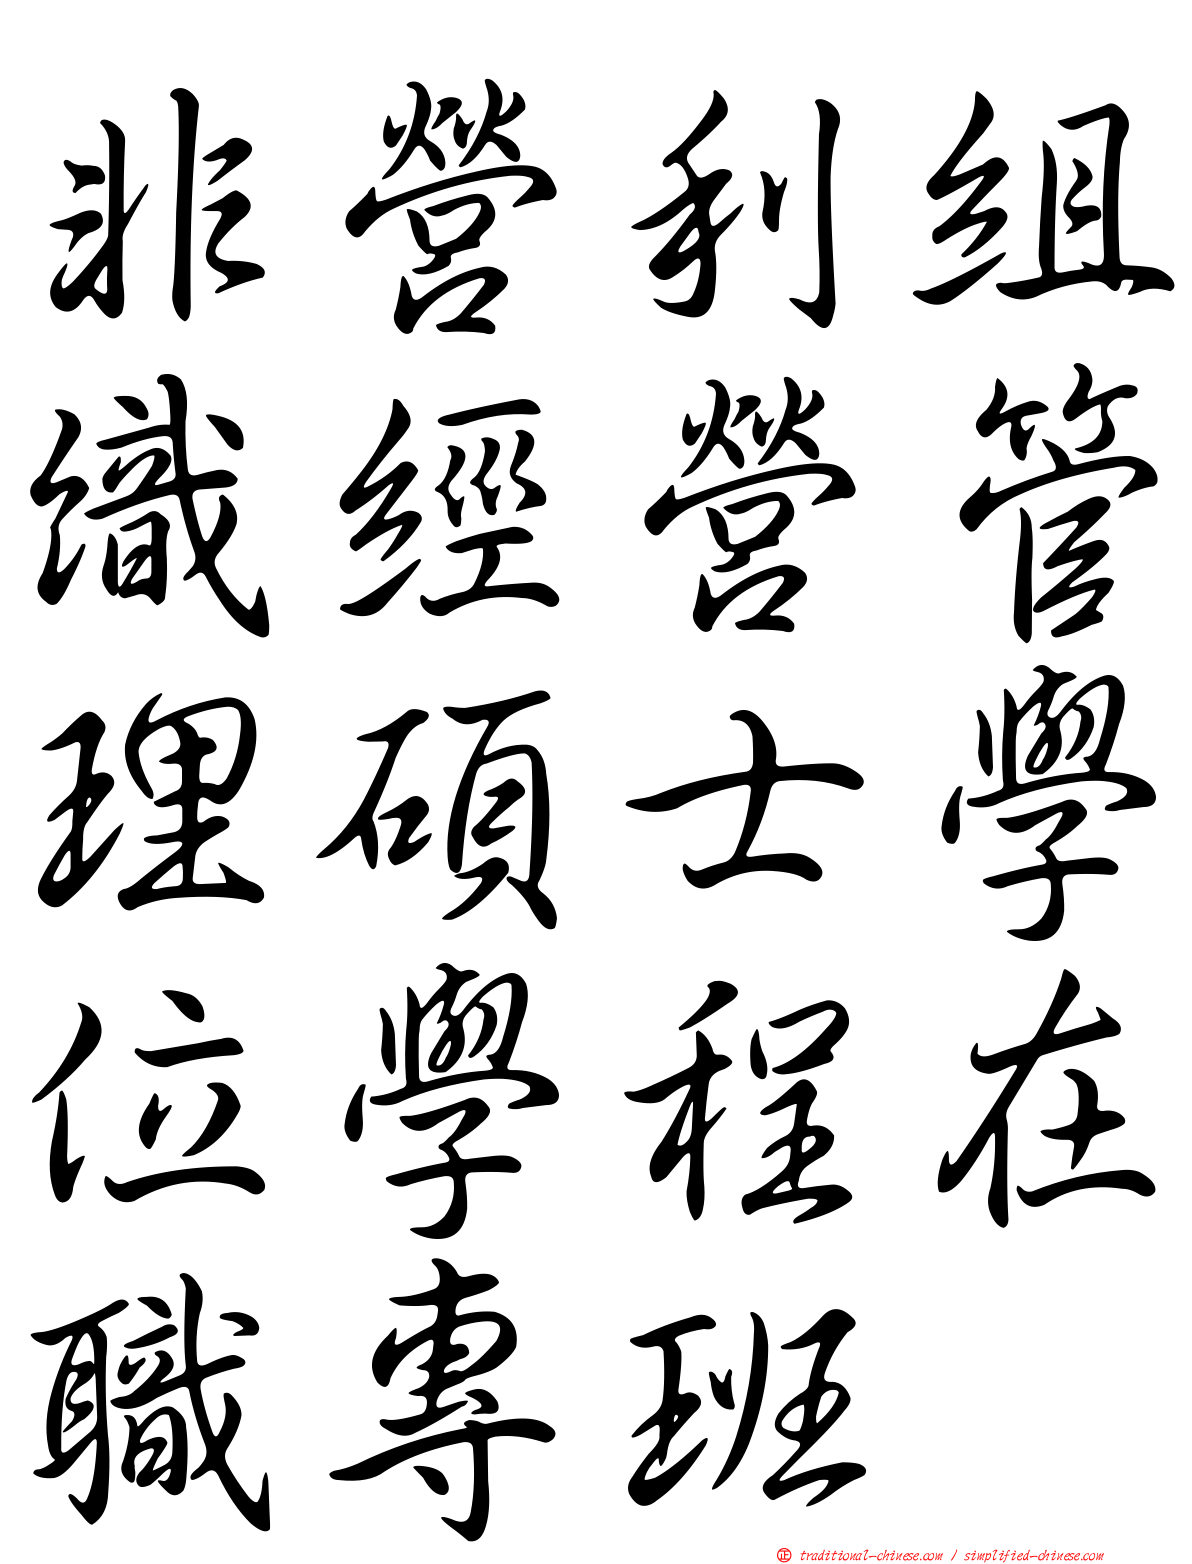 非營利組
織經營管
理碩士學
位學程在
職專班
正 traditional-chinese.com / simplified-chinese.com